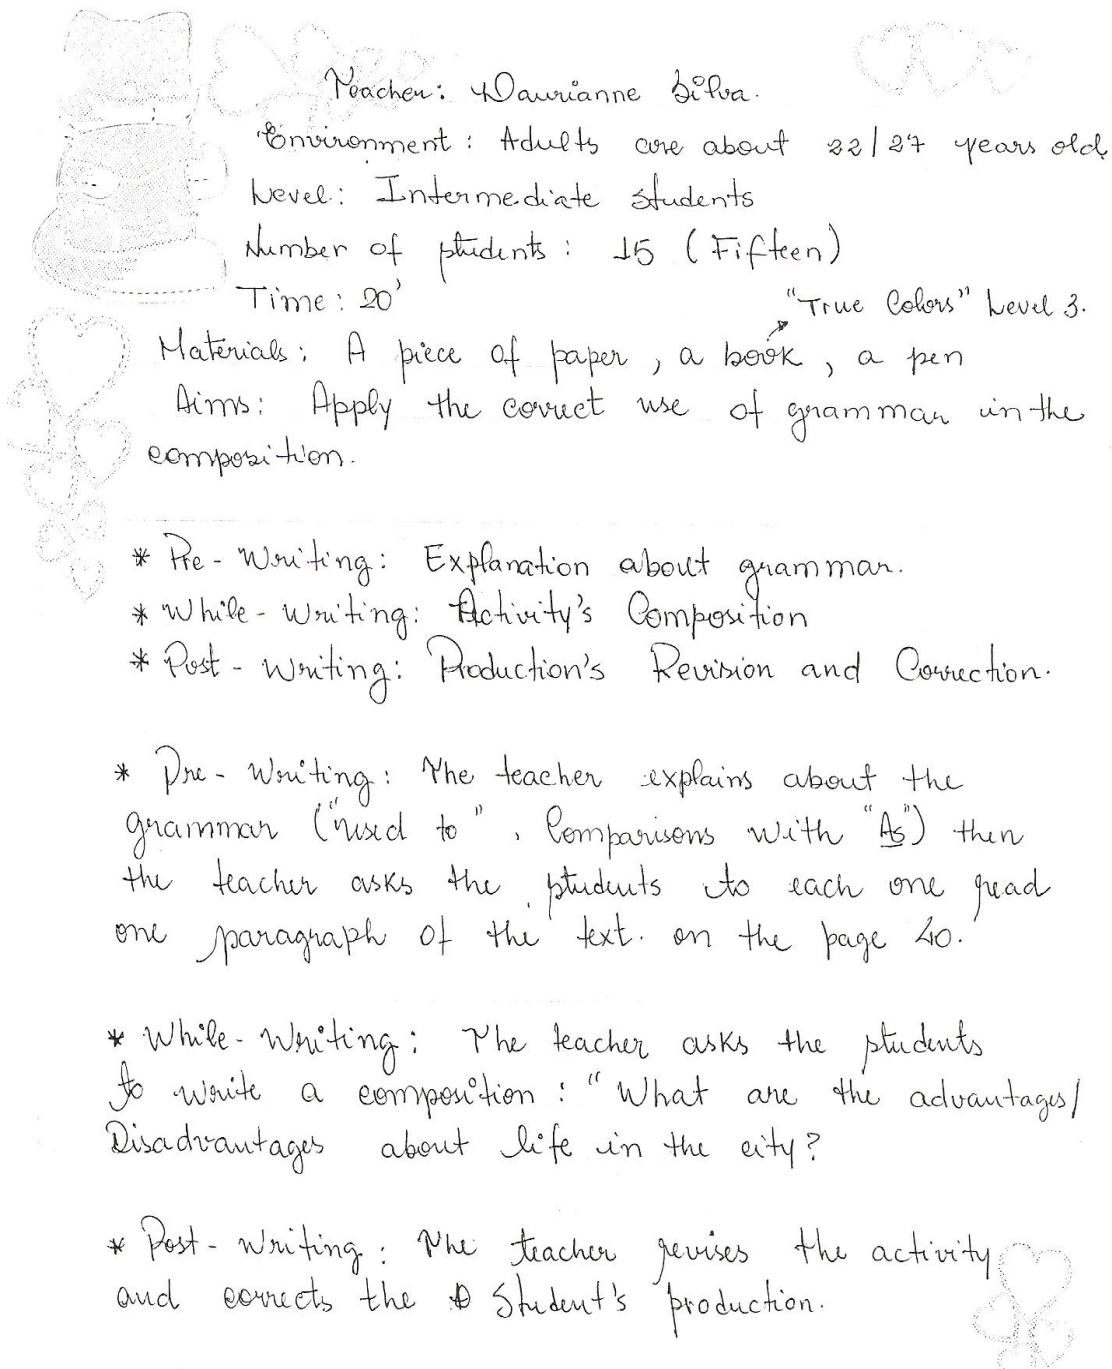 Teacher: Daurianne Silva.
Environment: Adults are about 22/27 years old
Level: Intermediate students
Number of students: 15 (Fifteen)
Time: 20'
"True Colors" Level 3.
Materials: A piece of paper, a book, a pen
Aims: Apply the correct use of grammar in the
composition.
* Pre-Writing: Explanation about grammar.
* While-writing: Activity's Composition
* Post-Writing: Production's Revision and Correction.
* Pre-Writing: The teacher explains about the
grammar ("used to", Comparisons with "As") then
the teacher asks the students to each one read
one paragraph of the text. on the page 40.
* While-Writing: The teacher asks the students
to write a composition: "What are the advantages/
Disadvantages about life in the city?
* Post-Writing: The teacher revises the activity
and corrects the Student's production.